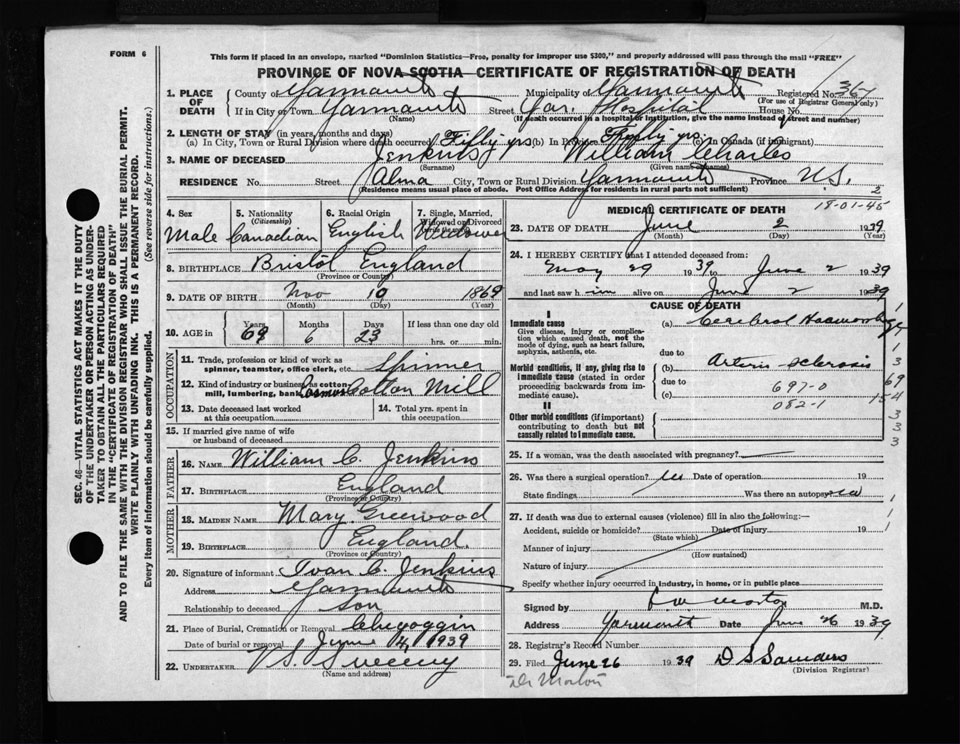 FORM 6
This form if placed in an envelope, marked "Dominion Statistics—Free, penalty for improper use $300," and properly addressed will pass through the mail "FREE"
PROVINCE OF NOVA SCOTIA—CERTIFICATE OF REGISTRATION OF DEATH
1. PLACE OF DEATH County of Yarmouth Municipality of Yarmouth Registered No. 367
(For use of Registrar General only)
If in City or Town Yarmouth Street Yar. Hospital House No.
(Name) (If death occurred in a hospital or institution, give the name instead of street and number)
2. LENGTH OF STAY (in years, months and days)
(a) In City, Town or Rural Division where death occurred Fifty yrs (b) In Province Fifty yrs. (c) In Canada (if immigrant)
3. NAME OF DECEASED Jenkins William Charles
(Surname) (Given names)
RESIDENCE No. Street Alma City, Town or Rural Division Yarmouth Province N.S.
(Residence means usual place of abode. Post Office Address for residents in rural parts not sufficient) 2
4. Sex Male
5. Nationality (Citizenship) Canadian
6. Racial Origin English
7. Single, Married, Widowed or Divorced
8. BIRTHPLACE Bristol England
(Province or County)
9. DATE OF BIRTH Nov 10 1869
(Month) (Day) (Year)
10. AGE in Years 69 Months 6 Days 23 If less than one day old
hrs. or min.
OCCUPATION
11. Trade, profession or kind of work as spinner, teamster, office clerk, etc. Spinner
12. Kind of industry or business, as cotton mill, lumbering, bank Cosmos Cotton Mill
13. Date deceased last worked at this occupation
14. Total yrs. spent in this occupation
15. If married give name of wife or husband of deceased
FATHER
16. NAME William C. Jenkins
17. BIRTHPLACE England
(Province or Country)
MOTHER
18. MAIDEN NAME Mary Greewood
19. BIRTHPLACE England.
(Province or Country)
20. Signature of informant Ivan C. Jenkins
Address Yarmouth
Relationship to deceased Son
21. Place of Burial, Cremation or Removal Chegoggin
Date of burial or removal June 4, 1939
22. UNDERTAKER V. S. Sweeny
(Name and address)
MEDICAL CERTIFICATE OF DEATH 18-01-45
23. DATE OF DEATH June 2 1939
(Month) (Day) (Year)
24. I HEREBY CERTIFY that I attended deceased from:
May 29 1939 to June 2 1939
and last saw him alive on June 2 1939
CAUSE OF DEATH
I
Immediate cause
Give disease, injury or complication which caused death, not the mode of dying, such as heart failure, asphyxia, asthenia, etc.
(a) Cerebral Haemorrhage
due to
Morbid conditions, if any, giving rise to immediate cause (stated in order proceeding backwards from immediate cause)
(b) Arterio sclerosis
due to 697-0
(c) 082-1
II
Other morbid conditions (if important) contributing to death but not causally related to immediate cause.
25. If a woman, was the death associated with pregnancy?
26. Was there a surgical operation? Date of operation 19
State findings Was there an autopsy no
27. If death was due to external causes (violence) fill in also the following:—
Accident, suicide or homicide? Date of injury 19
(State which)
Manner of injury
(How sustained)
Nature of injury
Specify whether injury occurred in industry, in home, or in public place
Signed by M.D.
Address Yarmouth Date June 26 1939
28. Registrar's Record Number
29. Filed June 26 1939 D S Saunders
(Division Registrar)
Dr Morton
SEC. 46—VITAL STATISTICS ACT MAKES IT THE DUTY
OF THE UNDERTAKER OR PERSON ACTING AS UNDER-
TAKER TO OBTAIN ALL THE PARTICULARS REQUIRED
IN THE "CERTIFICATE OF REGISTRATION OF DEATH"
AND TO FILE THE SAME WITH THE DIVISION REGISTRAR WHO SHALL ISSUE THE BURIAL PERMIT.
WRITE PLAINLY WITH UNFADING INK. THIS IS A PERMANENT RECORD.
Every item of information should be carefully supplied. (See reverse side for instructions.)